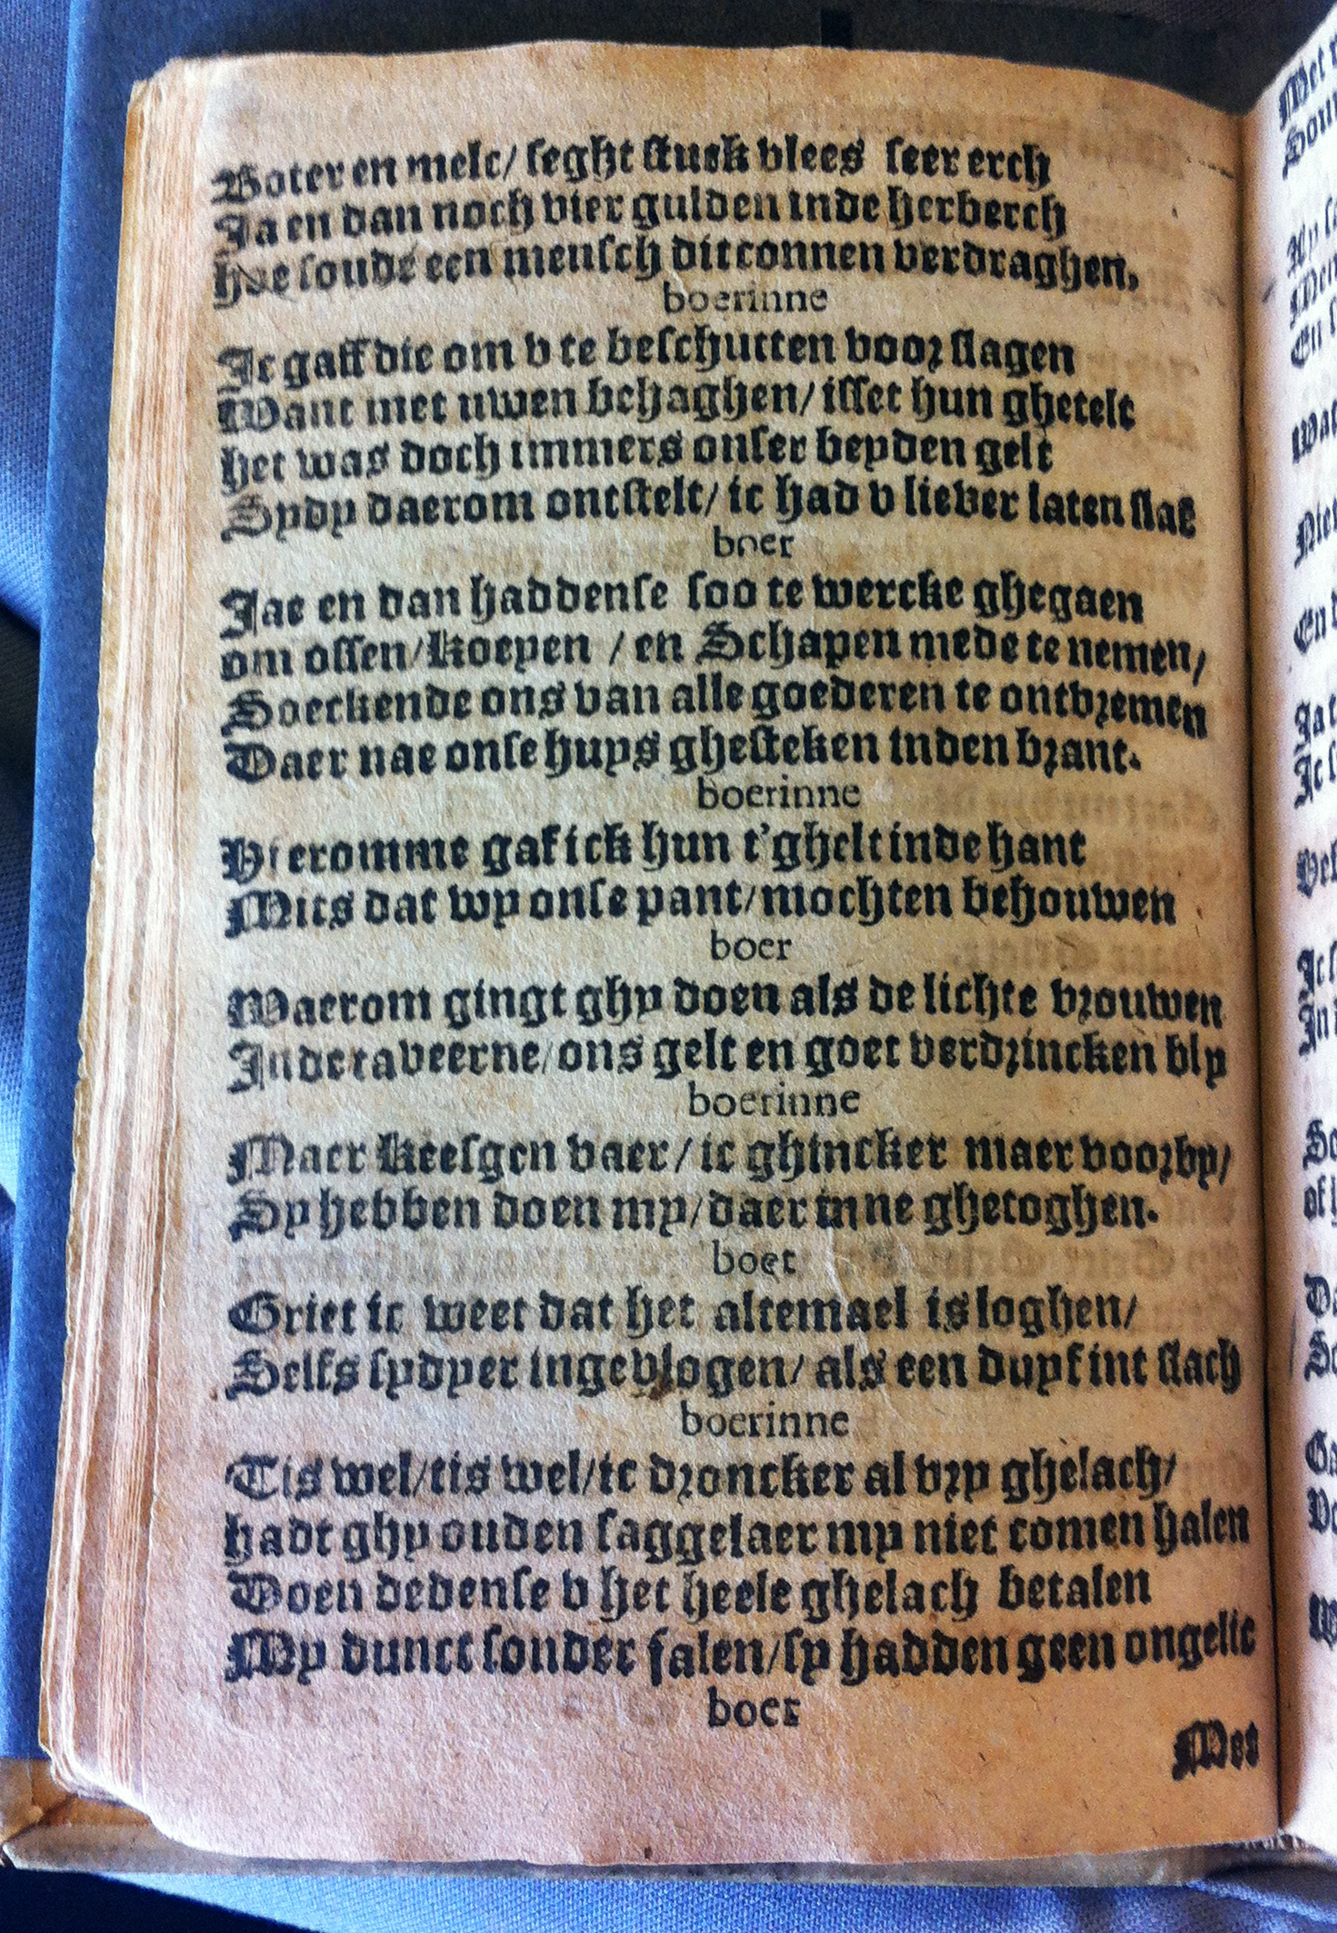 Boter en melc/ seght stuck vlees seer erch
Ja en dan noch vier gulden inde herberch
hoe soude een mensch dit connen verdraghen,
boerinne
Ic gaff die om v te beschutten voor slagen
Want met uwen behaghen/ isset hun ghetelt
het was doch immers onser beyden gelt
Sydy daerom ontstelt/ ic had v liever laten slaē
boer
Jae en dan haddense soo te wercke ghegaen
om ossen/ koeyen / en Schapen mede te nemen/
Soeckende ons van alle goederen te ontvremen
Daer nae onse huys ghesteken inden brant.
boerinne
Hieromme gaf ick hun t'ghelt inde hant
Mits dat wy onse pant/ mochten behouwen
boer
Waerom gingt ghy doen als de lichte vrouwen
In de taveerne/ ons gelt en goet verdrincken bly
boerinne
Maer keesgen vaer/ ic ghincker maer voorby/
Sy hebben doen my/ daer inne ghetoghen.
boer
Griet ic weet dat het altemael is loghen/
Selfs sydyer ingevlogen/ als een duyf int slach
boerinne
Tis wel/ tis wel/ ic droncker al vry ghelach/
hadt ghy ouden saggelaer my niet comen halen
Doen dedense v het heele ghelach betalen
My dunct sonder falen/ sy hadden geen ongelic
boer
Met
Met
Ny
En
Wa
Niet
En
Ja
Ic
In